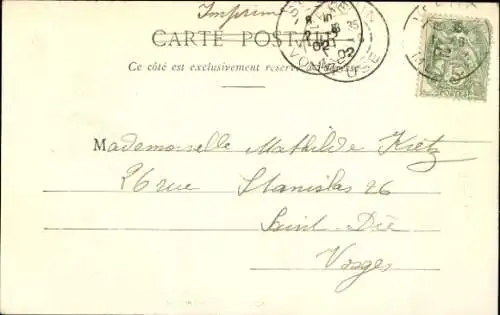 Imprimé
CARTE POSTALE
Ce côté est exclusivement réservé à l'adresse
Mademoiselle Mathilde Kietz
26 rue Stanislas 26
Saint-Dié
Vosges